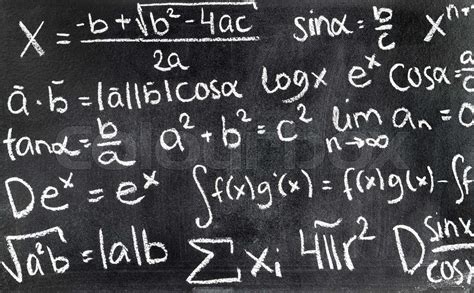 X = -b+√b²-4ac / 2a sinα = b/c Xⁿ⁺
ā·b̄ = |ā||b̄|cosα logx eˣ cosα =
tanα = b/a a² + b² = c² lim n→∞ aₙ = 0
Deˣ = eˣ ∫f(x)g'(x) = f(x)g(x) - ∫f
√a²b = |a|b ∑xi 4πr² D sinx/cosx